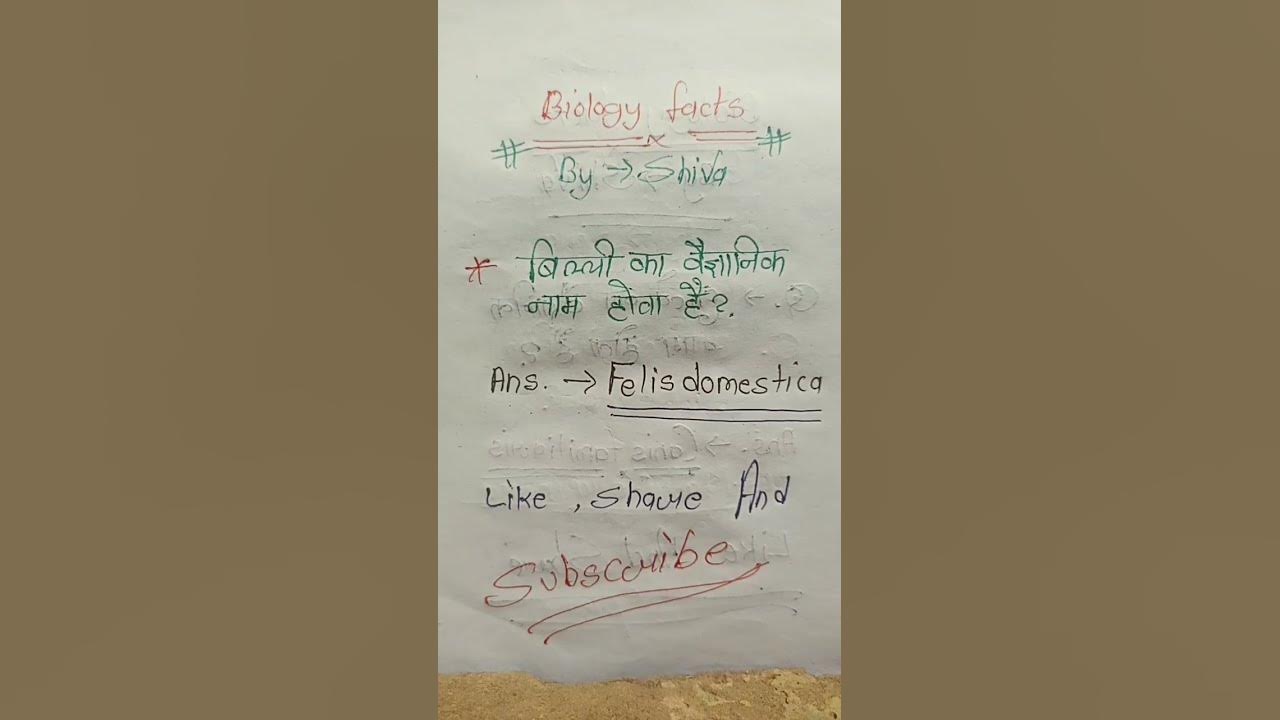 Biology facts
# × #
By → Shiva
* बिल्ली का वैज्ञानिक
नाम होता है?
Ans. → Felis domestica
Like, Share And
Subscribe